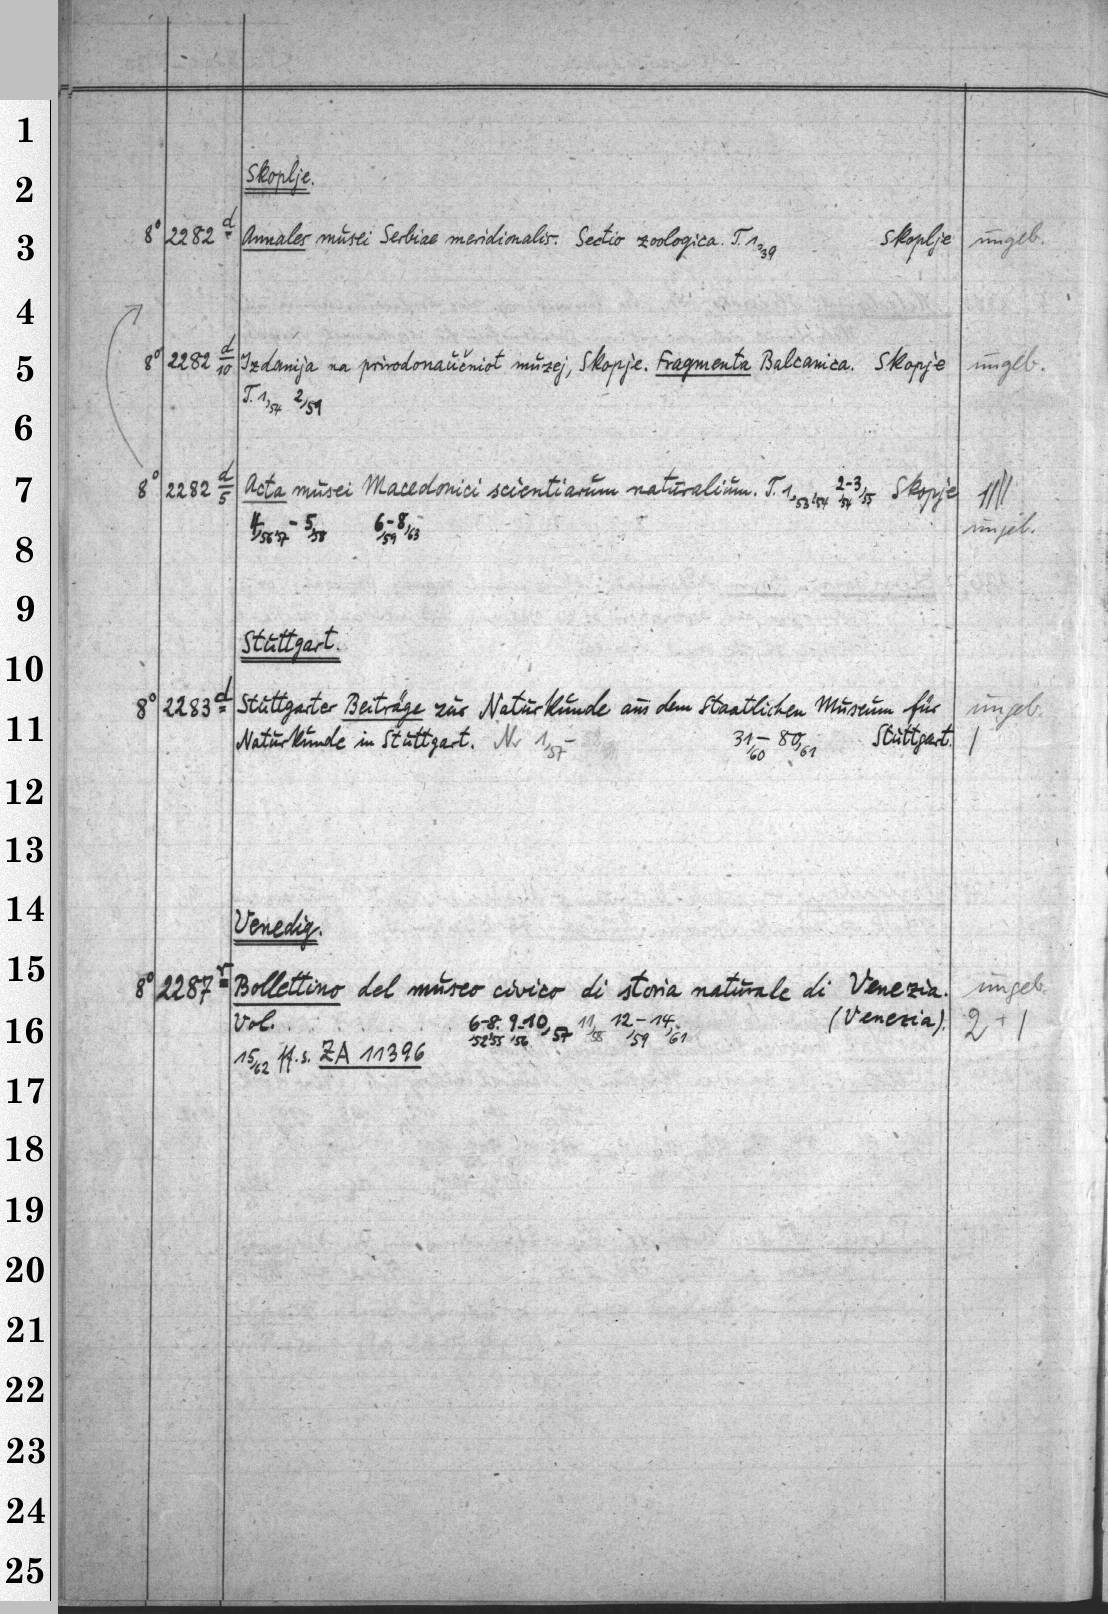 1
Skoplje.
2
3 8° 2282 d Annales musei Serbiae meridionalis. Sectio zoologica. T. 1,39 Skoplje ungeb.
4
5 8° 2282 d/10 Izdanija na prirodonaučniot muzej, Skopje. Fragmenta Balcanica. Skopje ungeb.
T. 1,54 2,59
6
7 8° 2282 d/5 Acta musei Macedonici scientiarum naturalium. T. 1,53/54 2-3,54/55 Skopje
4,56/57 - 5,58 6,59-8,63 ungeb.
8
9
Stuttgart.
10
8° 2283 d Stuttgarter Beiträge zur Naturkunde aus dem Staatlichen Museum für ungeb.
11 Naturkunde in Stuttgart. Nr 1,57- 31,60 - 80,61 Stuttgart. 1
12
13
14
Venedig.
15 8° 2287 r Bollettino del museo civico di storia naturale di Venezia. ungeb.
16 Vol. . . . . . . . . 6-8,52/55 9,56-10,57 11,58 12,59-14,61 (Venezia). 2 + 1
15,62 ff. s. ZA 11396
17
18
19
20
21
22
23
24
25